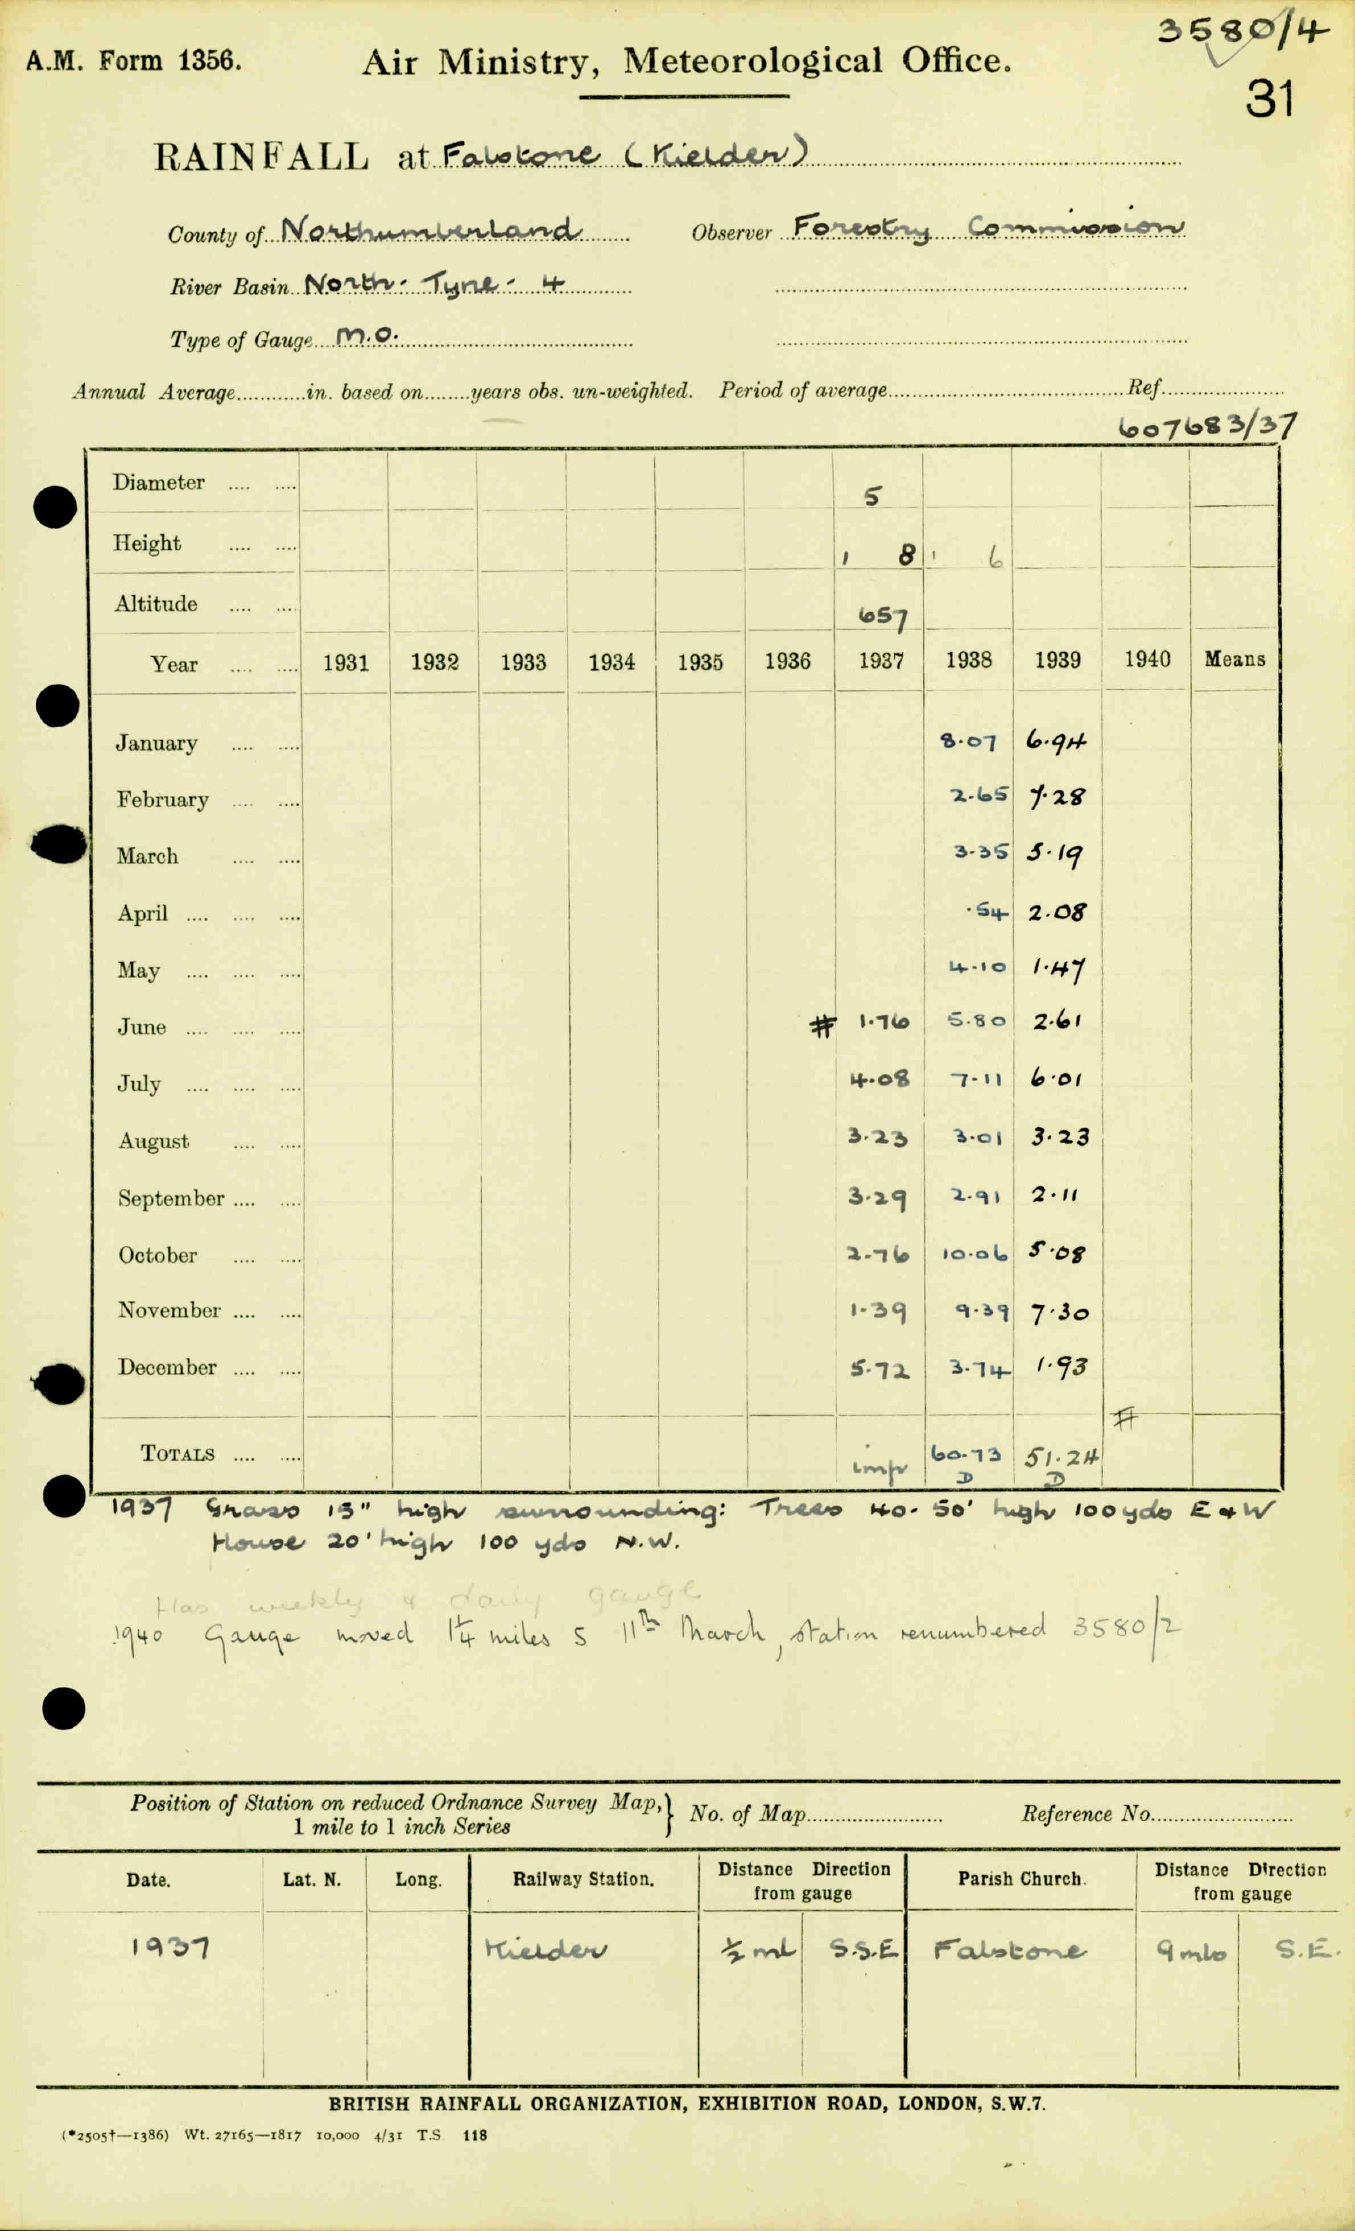 3580/4
A.M. Form 1356. Air Ministry, Meteorological Office.
31
RAINFALL at Falstone (Kielder)
County of Northumberland Observer Forestry Commission
River Basin North Tyne - 4
Type of Gauge M.O.
Annual Average............in. based on........years obs. un-weighted. Period of average........................................Ref.....................
607683/37
Diameter .... .... 5
Height .... .... 1 8 1 6
Altitude .... .... 657
Year .... .... 1931 1932 1933 1934 1935 1936 1937 1938 1939 1940 Means
January .... .... 8.07 6.94
February .... .... 2.65 7.28
March .... .... 3.35 5.19
April .... .... .... .54 2.08
May .... .... .... 4.10 1.47
June .... .... .... # 1.76 5.80 2.61
July .... .... .... 4.08 7.11 6.01
August .... .... 3.23 3.01 3.23
September .... .... 3.29 2.91 2.11
October .... .... 2.76 10.06 5.08
November .... .... 1.39 9.39 7.30
December .... .... 5.72 3.74 1.93
#
TOTALS .... .... imp 60.73 51.24
D D
1937 Grass 15" high surrounding: Trees 40-50' high 100 yds E & W
House 20' high 100 yds N.W.
Has weekly & daily gauge
1940 Gauge moved 1¼ miles S 11th March, station renumbered 3580/2
Position of Station on reduced Ordnance Survey Map, } No. of Map........................ Reference No.........................
1 mile to 1 inch Series
Date. Lat. N. Long. Railway Station. Distance Direction from gauge Parish Church. Distance Direction from gauge
1937 Kielder ½ ml S.S.E Falstone 9 mls S.E.
BRITISH RAINFALL ORGANIZATION, EXHIBITION ROAD, LONDON, S.W.7.
(*2505†—1386) Wt. 27165—1817 10,000 4/31 T.S 118